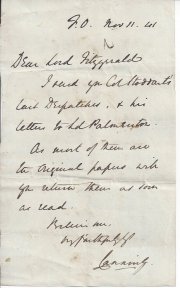 F.O. Nov 11. 41
Dear Lord Fitzgerald
I send you Col Stoddart's
last Dispatches, & his
letters to Ld Palmerston.
As most of them are
the original papers will
you return them as soon
as read.
Believe me
Canning